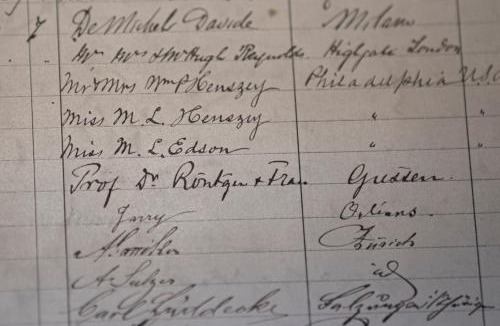 7 De Micheli Davide Milano
" Mr Mrs & Mr Hugh Reynolds Highgate London
Mr & Mrs Wm P Henszey Philadelphia U.S.
Miss M. L. Henszey " "
Miss M. L. Edson " "
Prof Dr Röntgen & Frau Giessen.
Jarry Orléans.
Zürich
A. Sulzer id
Carl Salzungen i/Thüring